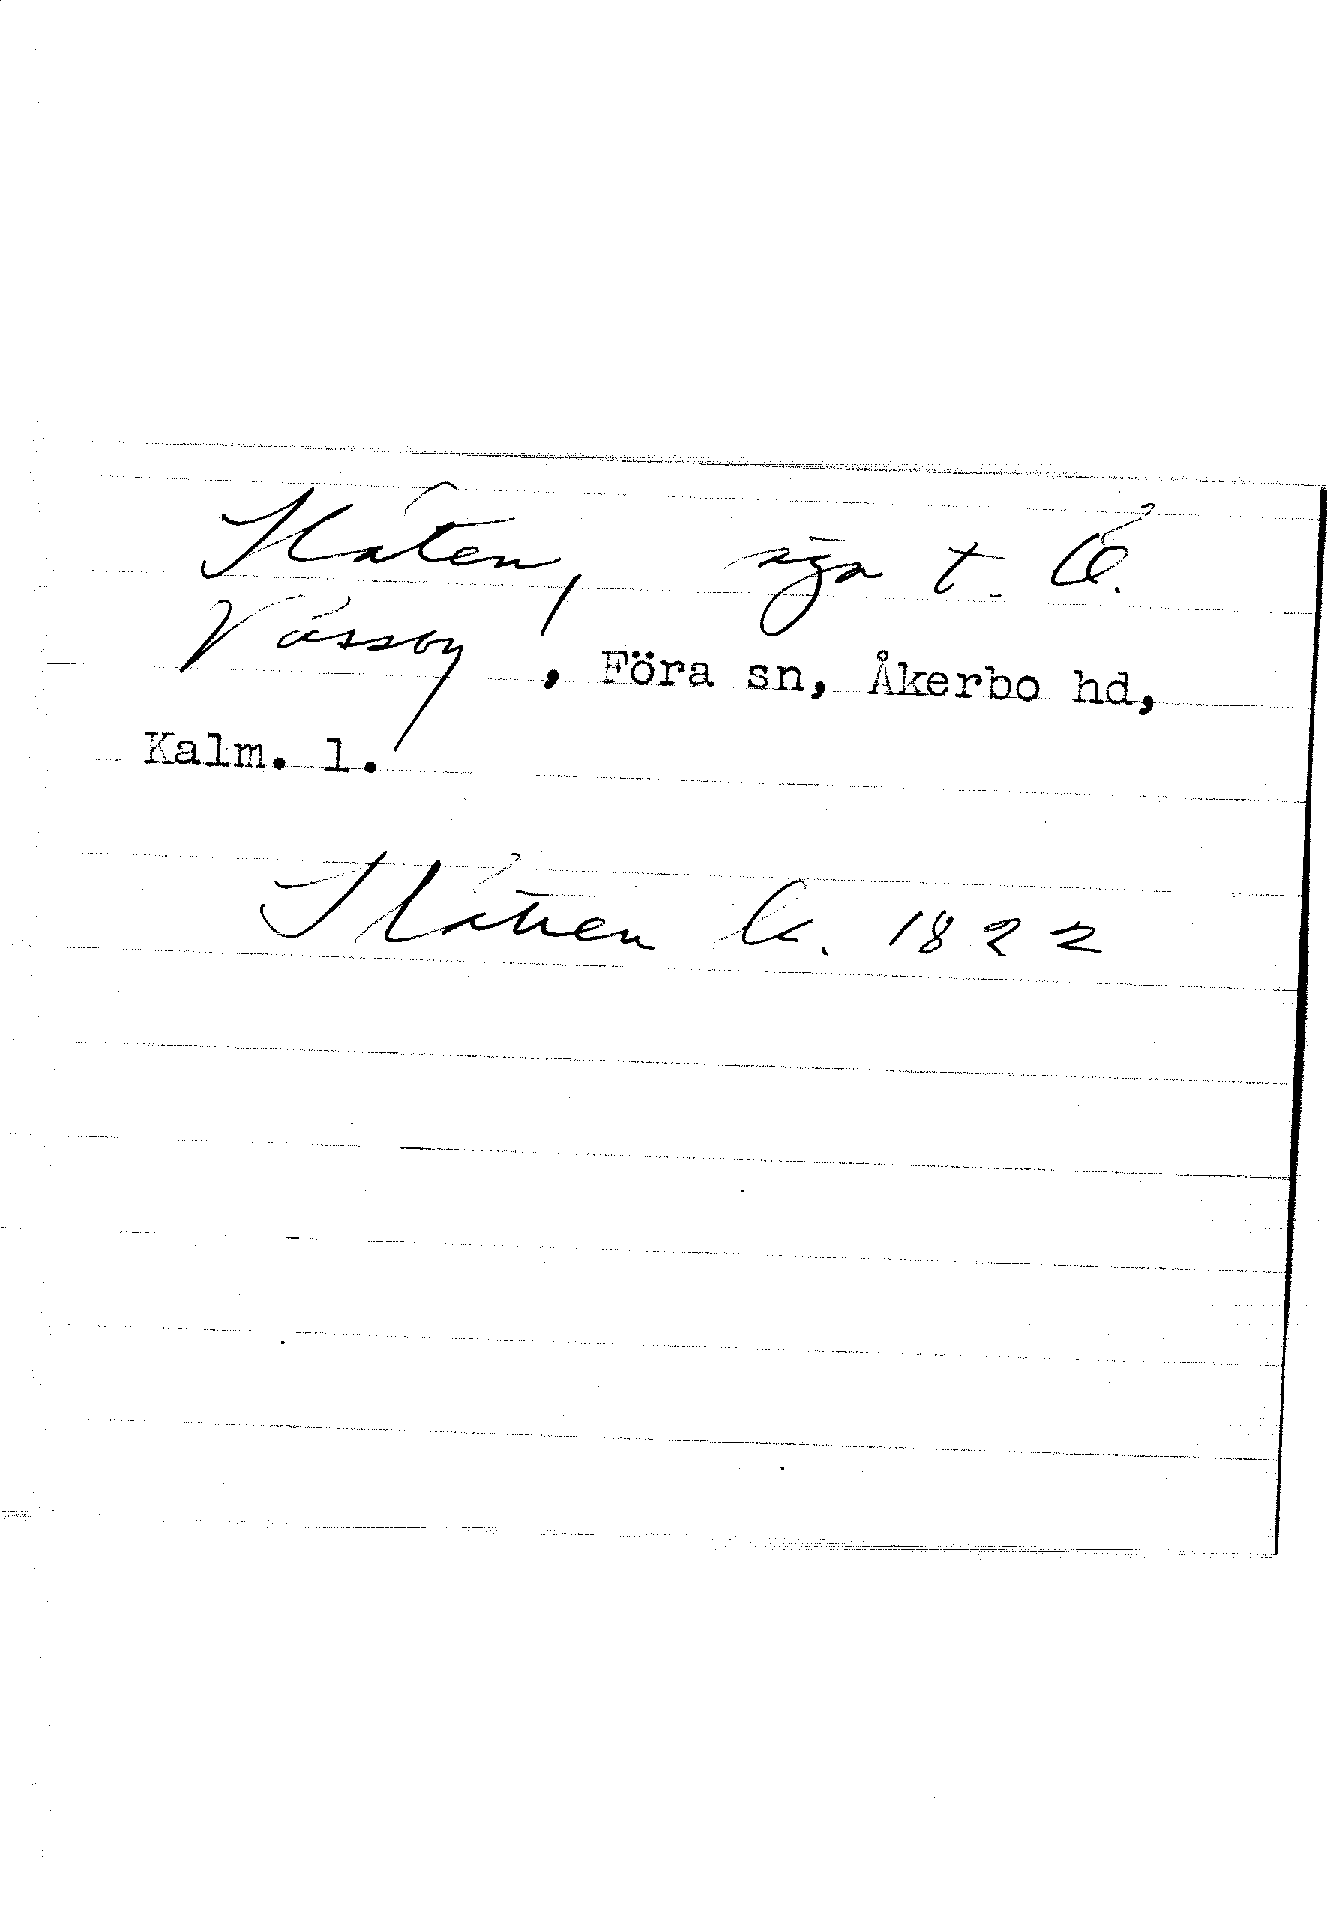 Slåten, äga t. Ö.
Vässby, Föra sn, Åkerbo hd,
Kalm. l.
Slåtten 1822